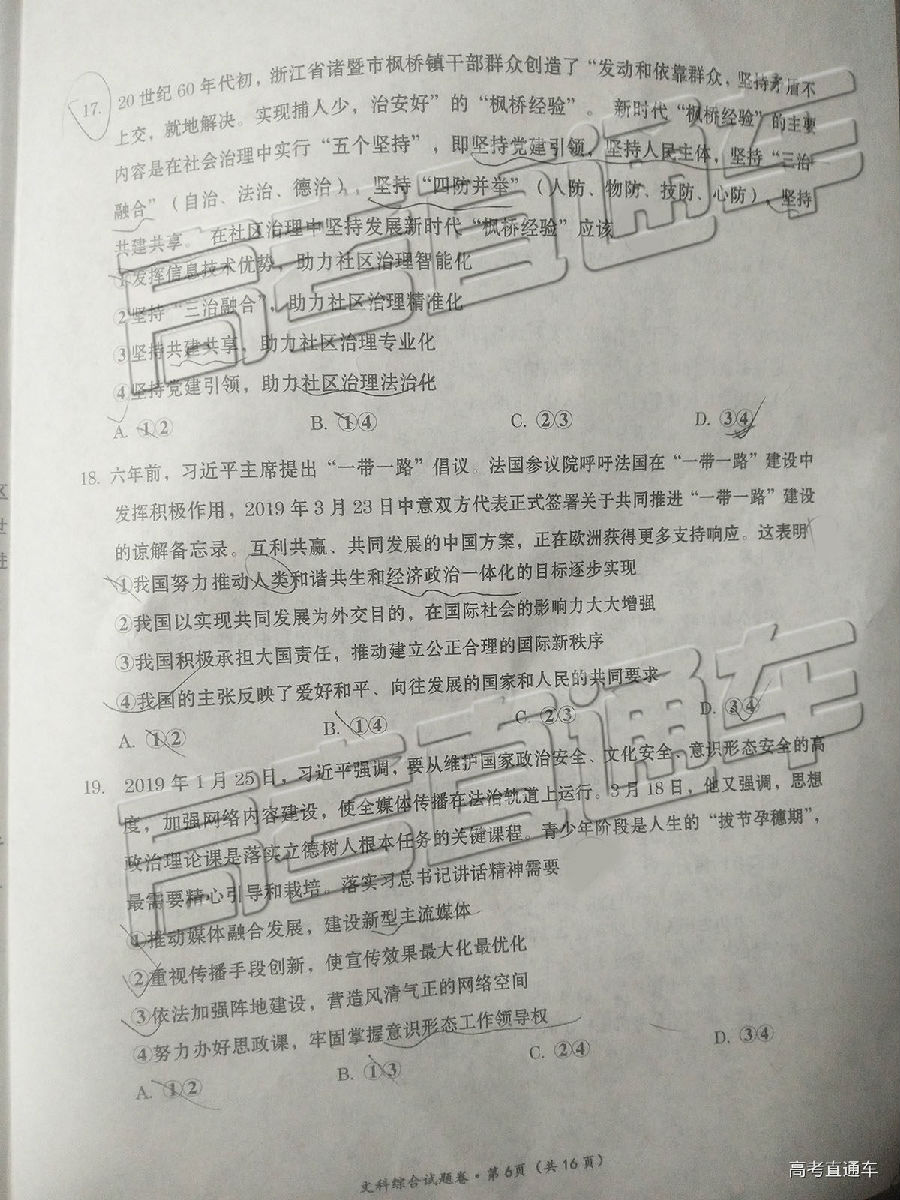 17. 20世纪60年代初，浙江省诸暨市枫桥镇干部群众创造了“发动和依靠群众，坚持矛盾不
上交，就地解决。实现捕人少，治安好”的“枫桥经验”。新时代“枫桥经验”的主要
内容是在社会治理中实行“五个坚持”，即坚持党建引领，坚持人民主体，坚持“三治
融合”（自治、法治、德治），坚持“四防并举”（人防、物防、技防、心防），坚持
共建共享。在社区治理中坚持发展新时代“枫桥经验”应该
①发挥信息技术优势，助力社区治理智能化
②坚持“三治融合”，助力社区治理精准化
③坚持共建共享，助力社区治理专业化
④坚持党建引领，助力社区治理法治化
A. ①② B. ①④ C. ②③ D. ③④
18. 六年前，习近平主席提出“一带一路”倡议。法国参议院呼吁法国在“一带一路”建设中
发挥积极作用，2019年3月23日中意双方代表正式签署关于共同推进“一带一路”建设
的谅解备忘录。互利共赢、共同发展的中国方案，正在欧洲获得更多支持响应。这表明
①我国努力推动人类和谐共生和经济政治一体化的目标逐步实现
②我国以实现共同发展为外交目的，在国际社会的影响力大大增强
③我国积极承担大国责任，推动建立公正合理的国际新秩序
④我国的主张反映了爱好和平、向往发展的国家和人民的共同要求
A. ①② B. ①④ C. ②③ D. ③④
19. 2019年1月25日，习近平强调，要从维护国家政治安全、文化安全、意识形态安全的高
度，加强网络内容建设，使全媒体传播在法治轨道上运行。3月18日，他又强调，思想
政治理论课是落实立德树人根本任务的关键课程。青少年阶段是人生的“拔节孕穗期”，
最需要精心引导和栽培。落实习总书记讲话精神需要
①推动媒体融合发展，建设新型主流媒体
②重视传播手段创新，使宣传效果最大化最优化
③依法加强阵地建设，营造风清气正的网络空间
④努力办好思政课，牢固掌握意识形态工作领导权
A. ①② B. ①③ C. ②④ D. ③④
文科综合试题卷·第6页（共16页）
高考直通车
高考直通车
高考直通车